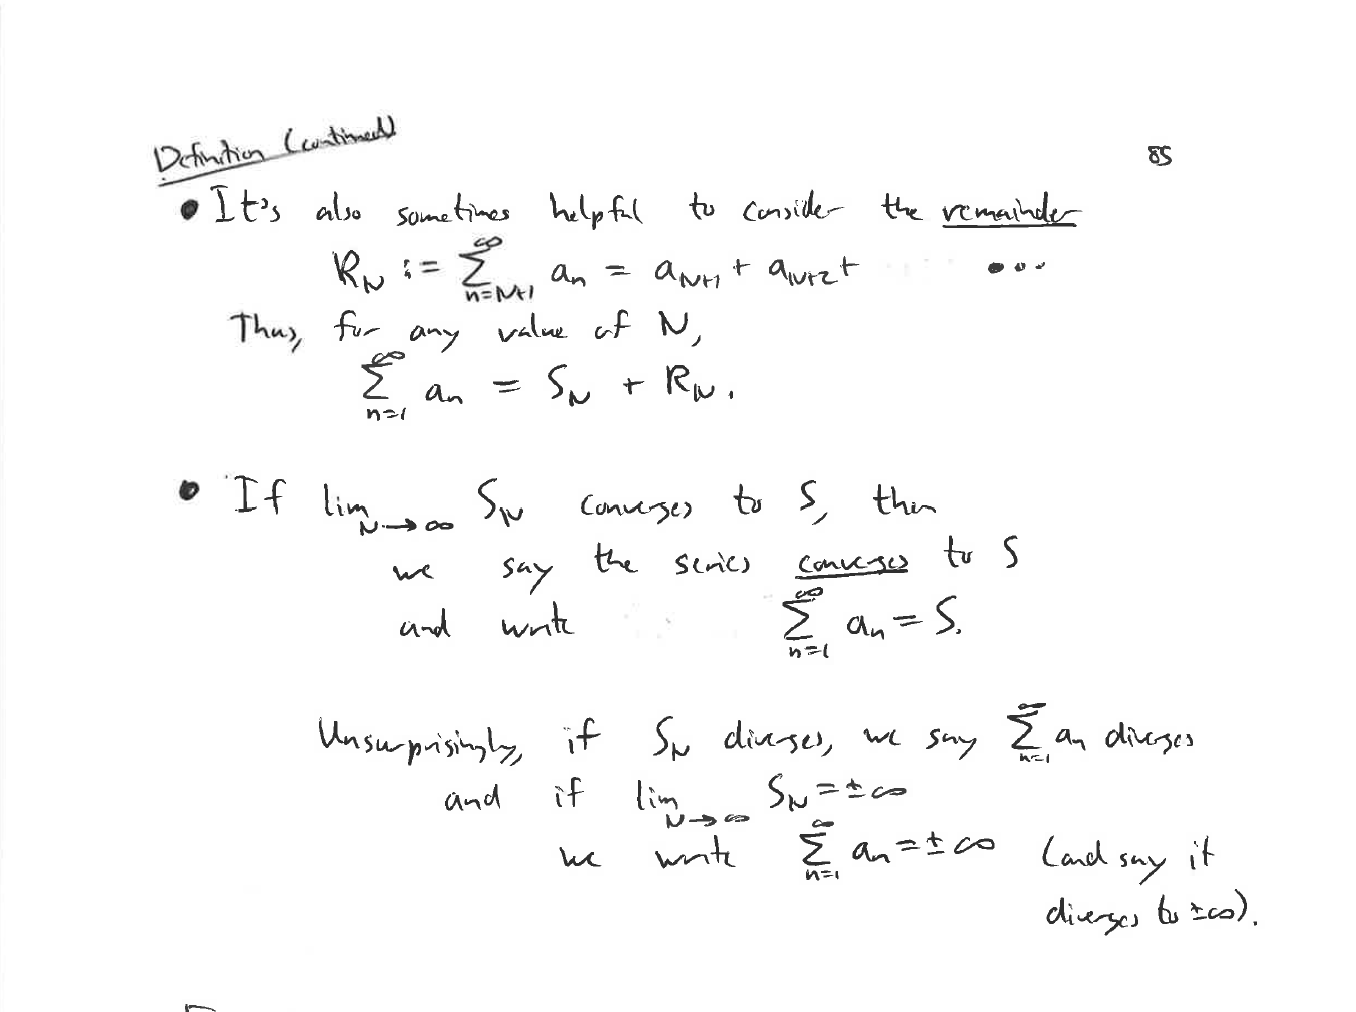 Definition (continued)
85
• It's also sometimes helpful to consider the remainder
R_N := ∑_{n=N+1}^∞ a_n = a_{N+1} + a_{N+2} + •••
Thus, for any value of N,
∑_{n=1}^∞ a_n = S_N + R_N.
• If lim_{N→∞} S_N converges to S, then
we say the series converges to S
and write ∑_{n=1}^∞ a_n = S.
Unsurprisingly, if S_N diverges, we say ∑_{n=1}^∞ a_n diverges
and if lim_{N→∞} S_N = ±∞
we write ∑_{n=1}^∞ a_n = ±∞ (and say it
diverges to ±∞).